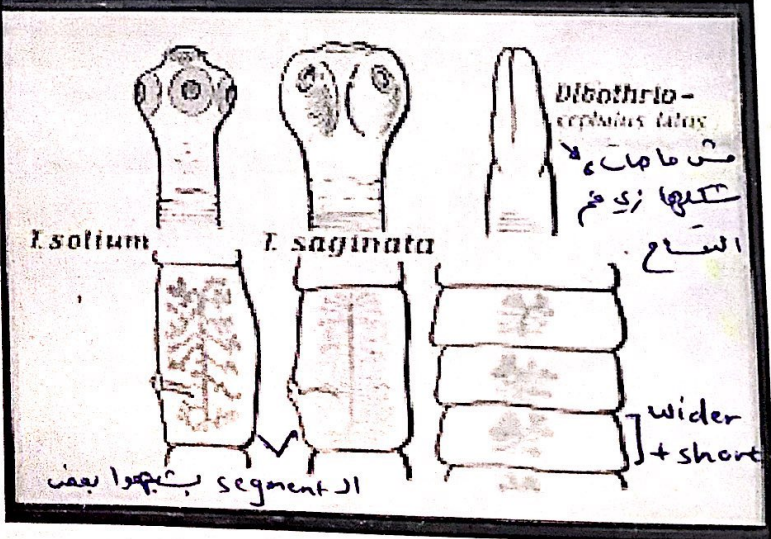 Dibothrio-
cephalus latus
مش ماصات،
شكلها زي فم
التمساح.
T. solium
T. saginata
wider
+ short
الـ segment بشبهوا بعض